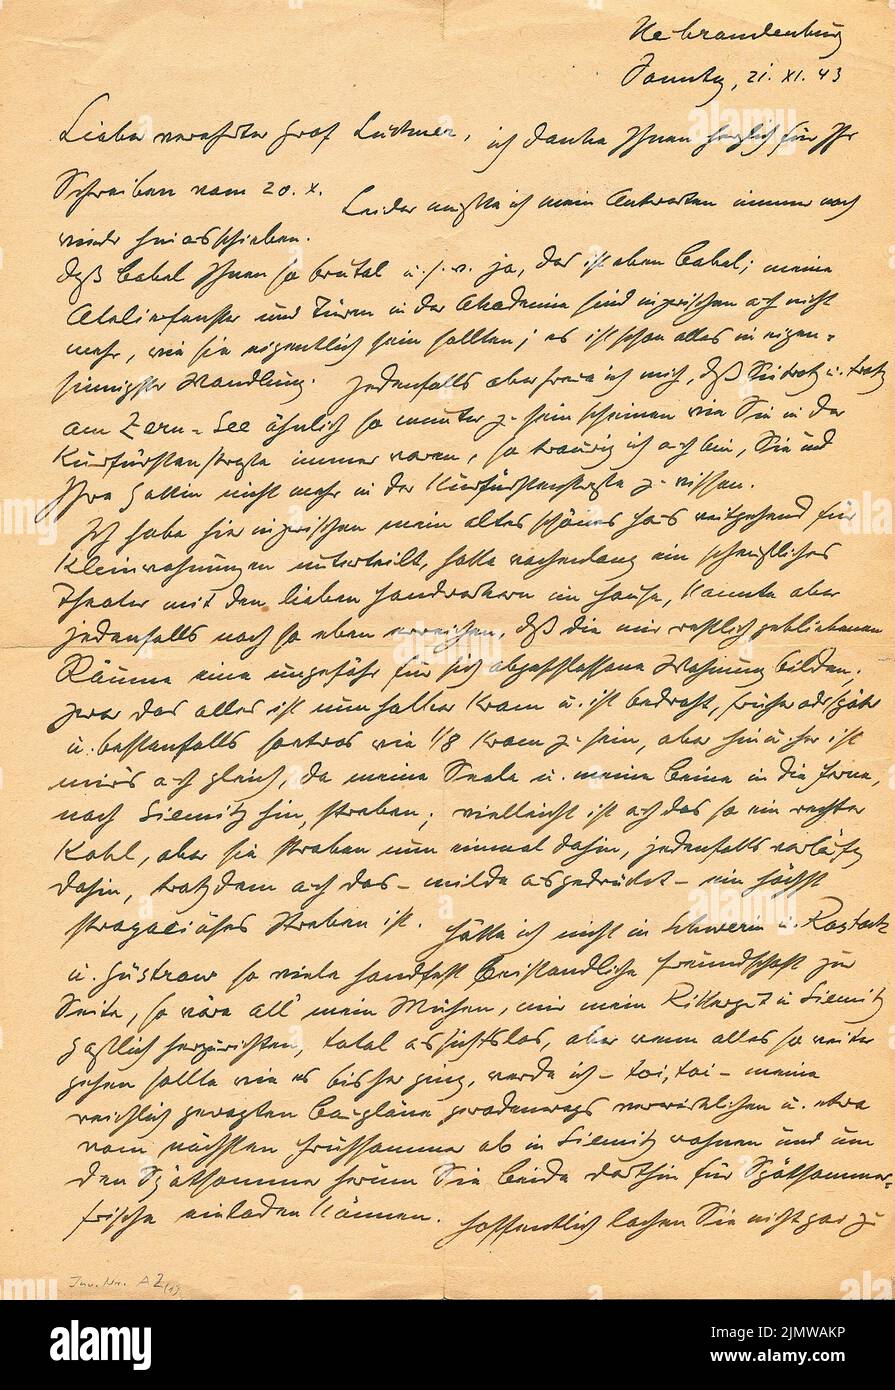 Neubrandenburg
Sonntag, 21. XI. 43
Lieber verehrter Graf Luckner, ich danke Ihnen herzlich für Ihr
Schreiben vom 20. X. Leider mußte ich mein Antworten immer noch
wieder hinausschieben.
Daß Babel Ihnen so brutal u.s.w. ja, das ist eben Babel; meine
Atelierfenster und Türen in der Akademie sind inzwischen auch nicht
mehr, wie sie eigentlich sein sollten; es ist schon alles in eigen-
sinnigster Wandlung. Jedenfalls aber freue ich mich, daß Sie trotz u. trotz
am Zern-See ähnlich so munter zu sein scheinen wie Sie in der
Kurfürstenstraße immer waren, so traurig ich auch bin, Sie und
Ihre Gattin nicht mehr in der Kurfürstenstraße zu wissen.
Ich habe hier inzwischen mein altes schönes Haus weitgehend für
Kleinwohnungen unterteilt, hatte wochenlang ein scheußliches
Theater mit den lieben Handwerkern im Hause, konnte aber
jedenfalls noch so eben erreichen, daß die mir restlich gebliebenen
Räume eine ungefähr für sich abgeschlossene Wohnung bilden;
zwar das alles ist nun halber Kram u. ist bedroht, früher oder später
u. bestenfalls so etwas wie 1/8 Kram zu sein, aber hin u. her ist
mir's auch gleich, da meine Seele u. meine Beine in die Ferne,
nach Siemitz hin, streben; vielleicht ist auch das so ein rechter
Kohl, aber sie streben nun einmal dahin, jedenfalls vorläufig
dahin, trotzdem auch das – milde ausgedrückt – ein höchst
strapaziöses Streben ist. Hätte ich nicht in Schwerin u. Rostock
u. Güstrow so viele handfest beistandliche Freundschaft zur
Seite, so wäre all' mein Mühen, mir mein Rittergut in Siemitz
gastlich herzurichten, total aussichtslos, aber wenn alles so weiter
gehen sollte wie es bisher ging, werde ich – toi, toi – meine
reichlich gewagten Baupläne geradenwegs verwirklichen u. etwa
vom nächsten Frühsommer ab in Siemitz wohnen und um
den Spätsommer herum Sie beide dorthin für Spätsommer-
frische einladen können. Hoffentlich lachen Sie nicht gar zu
Inv. Nr. A Z
alamy
alamy
Image ID: 2JMWAKP
www.alamy.com